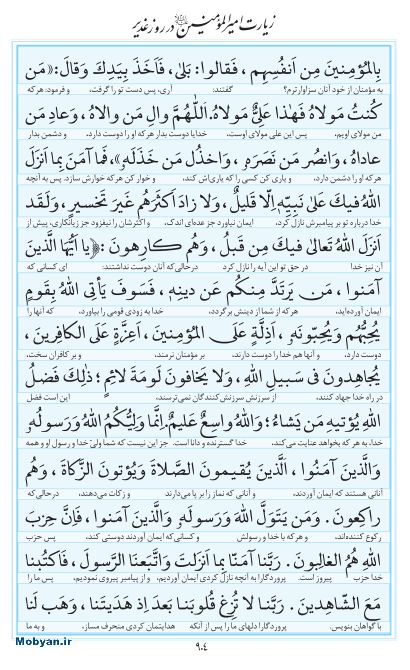 زیارت امیرالمؤمنین در روز غدیر
بِالْمُؤْمِنینَ مِن اَنفُسِهِم ، فَقالوا: بَلیٰ، فَاَخَذَ بِیَدِكَ وَقالَ: «مَن
به مؤمنان از خود آنان سزاوارترم؟ گفتند: آری، پس دست تو را گرفت، و فرمود: هر که
كُنتُ مَولاهُ فَهٰذا عَلِیٌّ مَولاهُ. اَللّٰهُمَّ والِ مَن والاهُ ، وَعادِ مَن
من مولای اویم، پس این علی مولای اوست، خدایا دوست بدار هر که او را دوست دارد، و دشمن بدار
عاداهُ ، وَانصُر مَن نَصَرَهُ ، وَاخذُل مَن خَذَلَهُ»، فَما آمَنَ بِما اَنزَلَ
هر که او را دشمن دارد، و یاری کن کسی را که یاری‌اش کند، و خوار کن هر که خوارش سازد. پس به آنچه
اللهُ فیكَ عَلیٰ نَبِیِّهِ اِلّا قَلیلٌ، وَلا زادَ اَكثَرَهُم غَیرَ تَخسیرٍ ، وَلَقَد
خدا درباره تو بر پیامبرش نازل کرد، ایمان نیاورد جز عده‌ای اندک، و اکثرشان را نیفزود جز زیانکاری، پیش از
اَنزَلَ اللهُ تَعالیٰ فیكَ مِن قَبلُ ، وَهُم كارِهونَ : ﴿یا اَیُّهَا الَّذینَ
آن نیز خدا در حق تو این آیه را نازل کرد درحالی‌که آنان دوست نداشتند: ای کسانی که
آمَنوا ، مَن یَرتَدَّ مِنكُم عَن دینِهِ، فَسَوفَ یَأتِی اللهُ بِقَومٍ
ایمان آورده‌اید، هر که از شما از دینش برگردد، خدا به زودی قومی را بیاورد، که آنها را
یُحِبُّهُم وَیُحِبّونَهُ، اَذِلَّةٍ عَلَی المُؤمِنینَ، اَعِزَّةٍ عَلَی الكافِرینَ ،
دوست دارد، و آنها هم خدا را دوست دارند، بر مؤمنان نرمند، و بر کافران سخت،
یُجاهِدونَ فی سَبیلِ اللهِ ، وَلا یَخافونَ لَومَةَ لائِمٍ ؛ ذٰلِكَ فَضلُ
در راه خدا جهاد کنند، از سرزنش سرزنش‌کنندگان نمی‌ترسند، این است فضل
اللهِ یُؤتیهِ مَن یَشاءُ؛ وَاللهُ واسِعٌ عَلیمٌ. اِنَّما وَلِیُّكُمُ اللهُ وَرَسولُهُ
خدا، به هر که بخواهد عنایت می‌کند، خدا گسترده و دانا است. جز این نیست که شما ولیّ خدا و رسول او و همه
وَالَّذینَ آمَنُوا ، الَّذینَ یُقیمونَ الصَّلاةَ وَیُؤتونَ الزَّكاةَ ، وَهُم
آنانی هستند که ایمان آوردند، و آنانی که نماز را بر پا می‌دارند و زکات می‌دهند، درحالی‌که
راكِعونَ . وَمَن یَتَوَلَّ اللهَ وَرَسولَهُ وَالَّذینَ آمَنوا ، فَاِنَّ حِزبَ
رکوع کننده‌اند، و هر که با خدا و رسولش و کسانی‌که ایمان آوردند دوستی کند، پس حزب
اللهِ هُمُ الغالِبونَ . رَبَّنا آمَنّا بِما اَنزَلتَ وَاتَّبَعنَا الرَّسولَ ، فَاكتُبنا
خدا حزب پیروز است. پروردگارا به آنچه نازل کردی ایمان آوردیم، و از پیامبر پیروی نمودیم، پس ما را
مَعَ الشّاهِدینَ . رَبَّنا لا تُزِغ قُلوبَنا بَعدَ اِذ هَدَیتَنا ، وَهَب لَنا
با گواهان بنویس. پروردگارا دلهای ما را پس از آنکه هدایتمان کردی منحرف مساز، و به ما
۹۰۴
Mobyan.ir